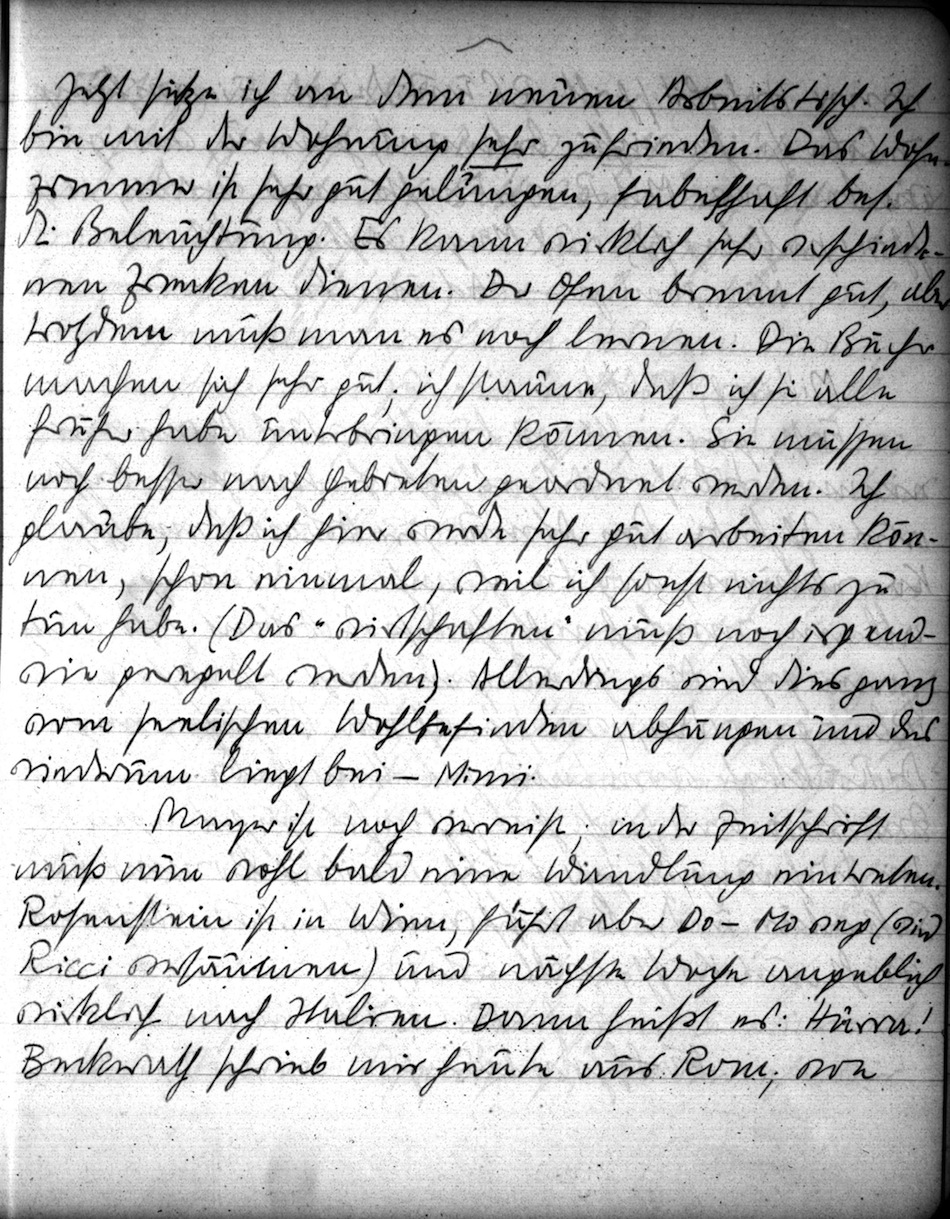 Jetzt sitze ich an dem neuen Arbeitstisch. Ich
bin mit der Wohnung sehr zufrieden. Das Wohn-
zimmer ist sehr gut gelungen, fabelhaft bes.
d. Beleuchtung. Es kann wirklich sehr verschiede-
nen Zwecken dienen. Der Ofen brennt gut, aber
trotzdem muß man es noch lernen. Die Bücher
machen sich sehr gut; ich staune, daß ich sie alle
früher habe unterbringen können. Sie müssen
noch besser nach Gebieten geordnet werden. Ich
glaube, daß ich hier werde sehr gut arbeiten kön-
nen, schon einmal, weil ich sonst nichts zu
tun habe. (Das "wirtschaften" muß noch irgend-
wie geregelt werden). Allerdings wird dies ganz
vom seelischen Wohlbefinden abhängen und das
wiederum liegt bei – Mimi.
Mayer ist noch verreist; in der Zeitschrift
muß nun wohl bald eine Wandlung eintreten.
Rosenstein ist in Wien, fährt aber Do – Mo weg (wird
Ricci versäumen) und nächste Woche angeblich
wirklich nach Italien. Dann heißt es: Hurra!
Beckerath schrieb mir heute aus Rom, wo